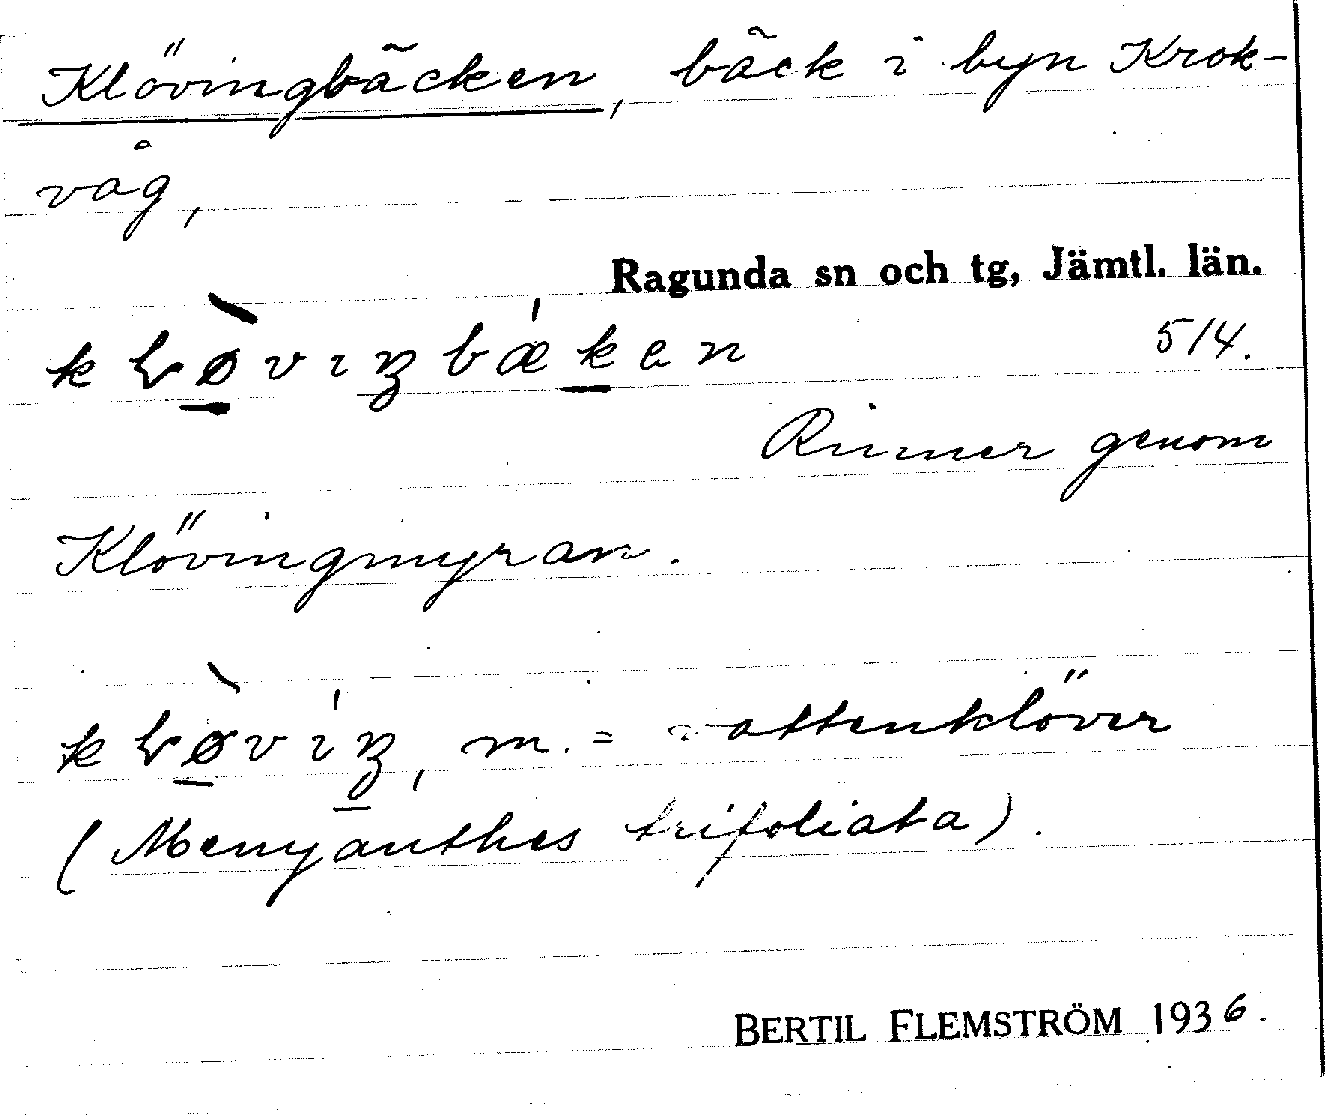 Klövingbäcken, bäck i byn Krok-
våg,
Ragunda sn och tg, Jämtl. län.
514.
Rinner genom
Klövingmyran.
m. = vattenklöver
(Menyanthes trifoliata).
BERTIL FLEMSTRÖM 1936.